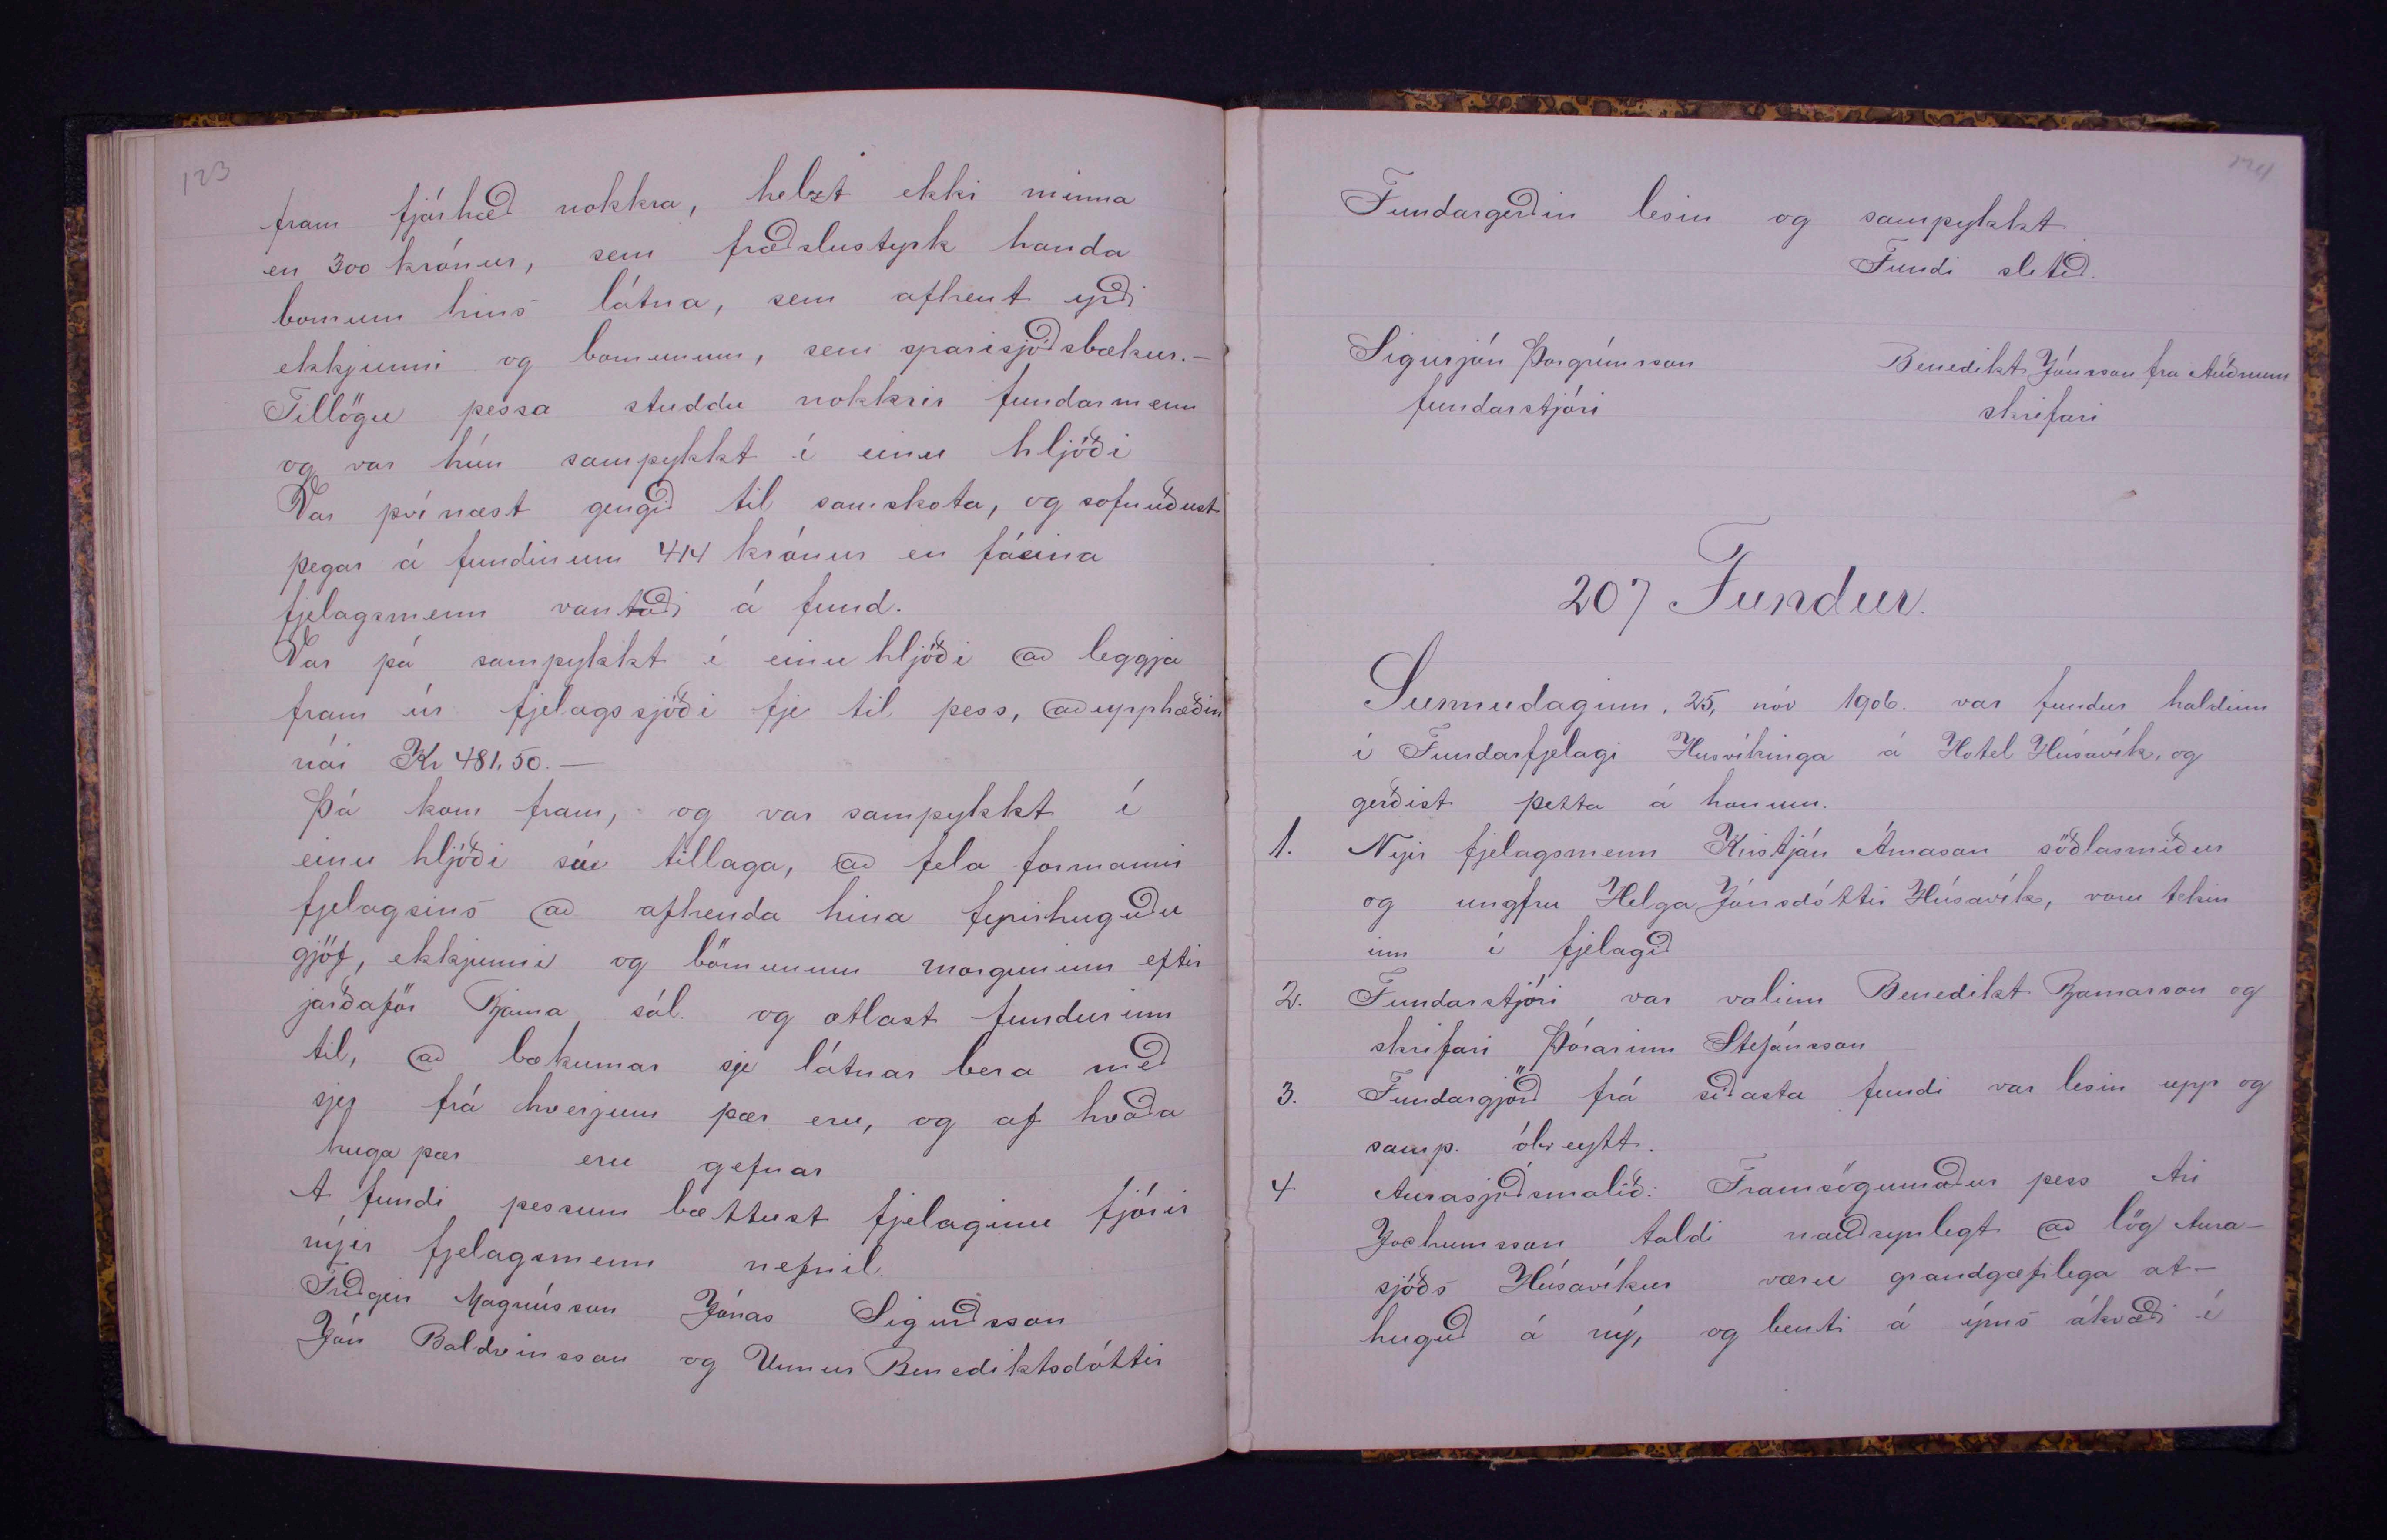 123
fram fjárhæð nokkra, helzt ekki minna
en 300 krónur, sem fræðslustyrk handa
börnum hins látna, sem afhent yrði
ekkjunni og börnunum, sem sparisjóðsbækur. —
Tillögu þessa studdu nokkrir fundarmenn
og var hún samþykkt í einu hljóði
Var þvínæst gengið til samskota, og söfnuðust
þegar á fundinum 414 krónur en fáeina
fjelagsmenn vantaði á fund.
Var þá samþykkt í einu hljóði að leggja
fram úr fjelagssjóði fje til þess, að upphæðin
nái Kr 481,50. —
Þá kom fram, og var samþykkt í
einu hljóði sú tillaga, að fela formanni
fjelagsins að afhenda hina fyrirhuguðu
gjöf, ekkjunni og börnunum morguninn eftir
jarðaför Bjarna sál. og ætlast fundurinn
til, að bækurnar sje látnar bera með
sjer frá hverjum þær eru, og af hvaða
huga þær eru gefnar
A fundi þessum bættust fjelaginu fjórir
nýir fjelagsmenn nefnil.
Friðgeir Magnússon Jónas Sigurðsson
Jón Baldvinsson og Unnur Benediktsdóttir
124
Fundargerðin lesin og samþykkt
Fundi slitið.
Sigurjón Þorgrímsson Benedikt Jónsson fra Auðnum
fundarstjóri skrifari
207 Fundur.
Sunnudaginn, 25, nóv 1906. var fundur haldinn
í Fundarfjelagi Husvíkinga á Hotel Húsavík, og
gerðist þetta á honum.
1. Nyir fjelagsmenn Kristján Árnason söðlasmiður
og ungfru Helga Jónsdóttir Húsavík, voru tekin
inn í fjelagið
2. Fundarstjóri var valinn Benedikt Bjarnarson og
skrifari Þórarinn Stefánsson
3. Fundargjörð frá síðasta fundi var lesin upp og
samþ. óbreytt.
4 Aurasjóðsmalið: Framsögumaður þess Ari
Jochumsson taldi nauðsynlegt að lög Aura-
sjóðs Húsavíkur væru grandgæfilega at-
huguð á ný, og benti á ýms ákvæði í